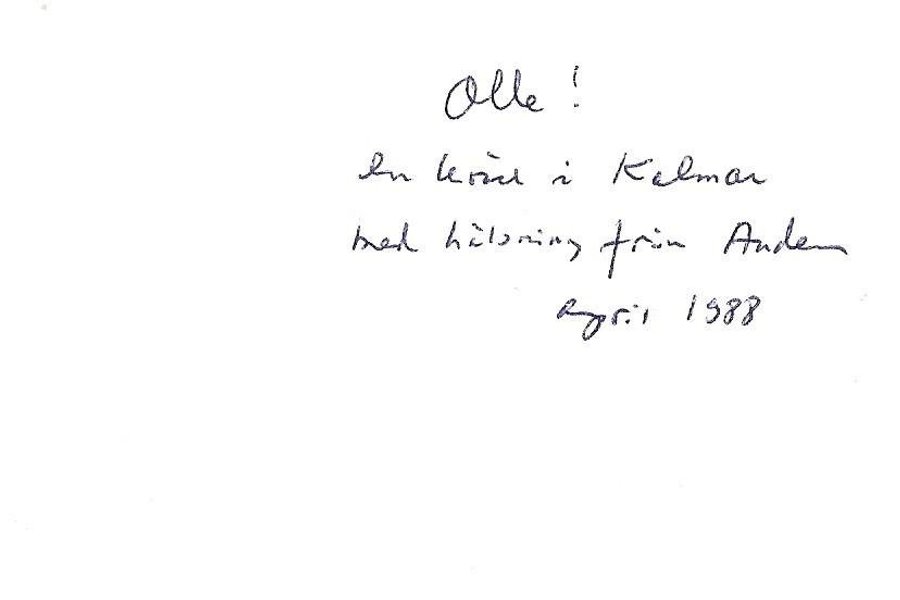 Olle!
En kväll i Kalmar
med hälsning från Anders
April 1988